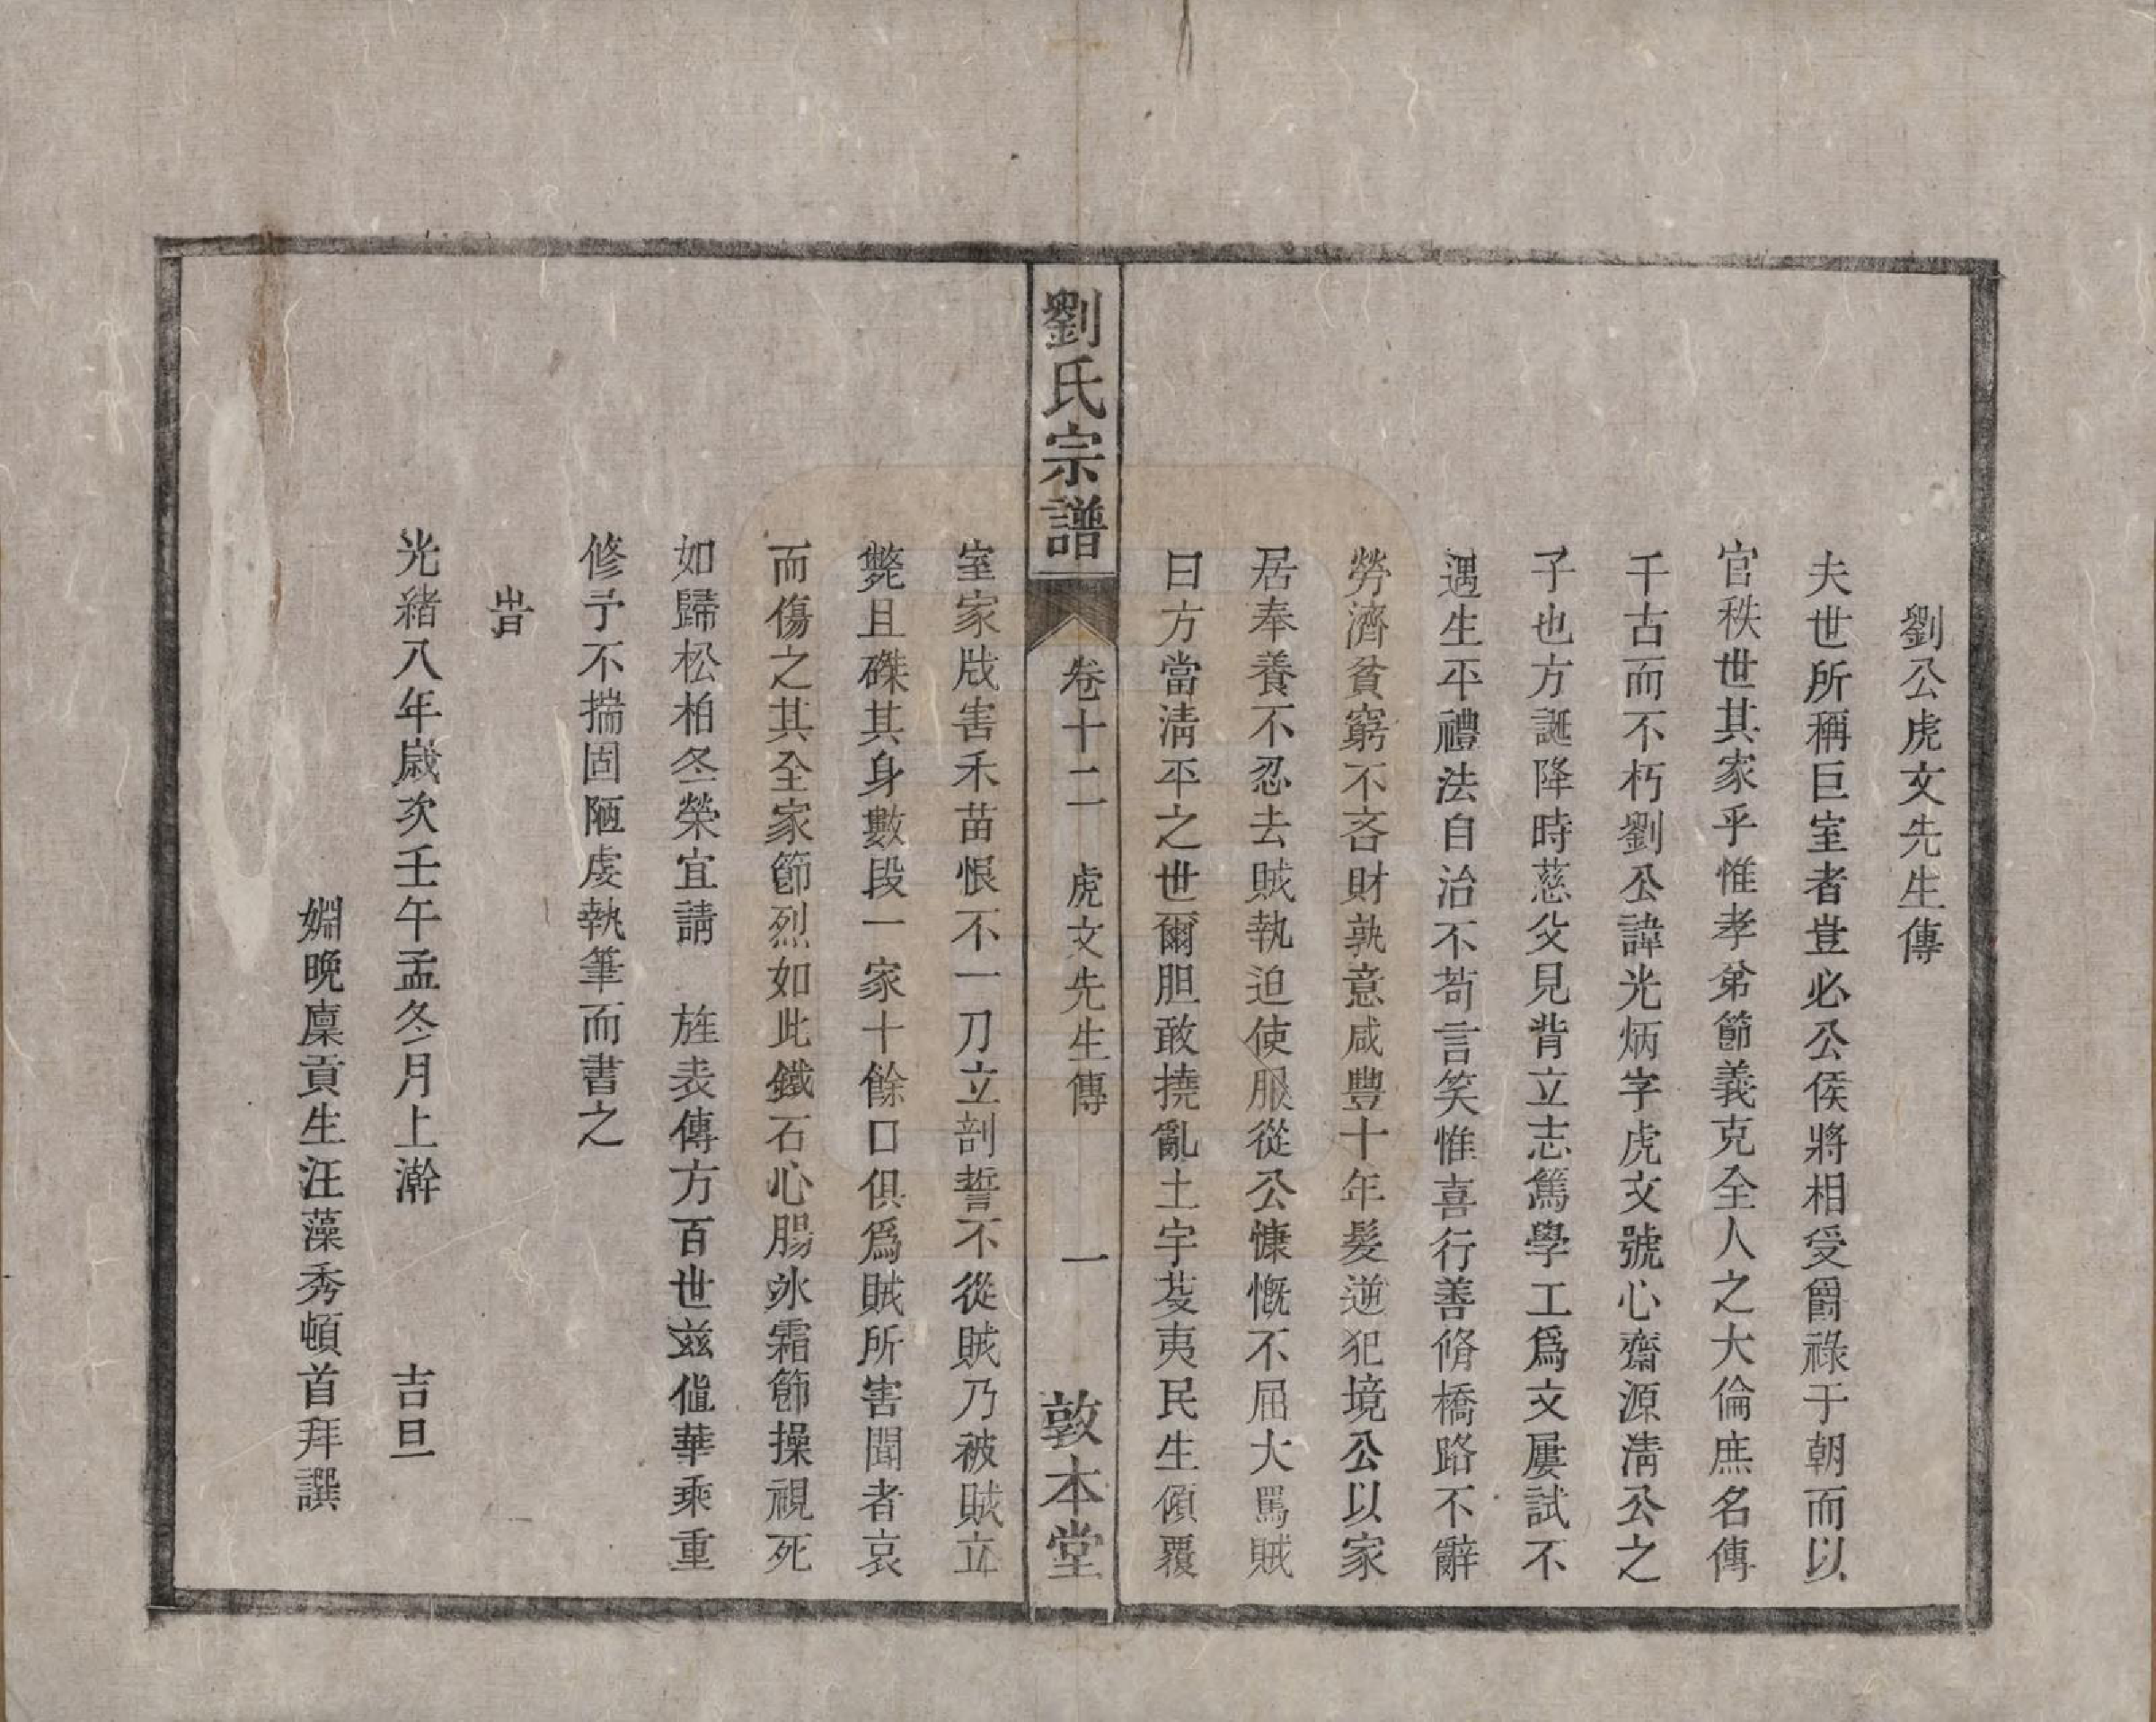 劉公虎文先生傳
夫世所稱巨室者豈必公侯將相受爵祿于朝而以
官秩世其家乎惟孝弟節義克全人之大倫庶名傳
千古而不朽劉公諱光炳字虎文號心齋源淸公之
子也方誕降時慈父見背立志篤學工爲文屢試不
遇生平禮法自治不苟言笑惟喜行善脩橋路不辭
勞濟貧窮不吝財孰意咸豐十年髮逆犯境公以家
居奉養不忍去賊執迫使服從公慷慨不屈大罵賊
曰方當淸平之世爾胆敢撓亂土宇芟夷民生傾覆
劉氏宗譜
卷十二 虎文先生傳 一
敦本堂
室家戕害禾苗恨不一刀立剖誓不從賊乃被賊立
斃且磔其身數段一家十餘口俱爲賊所害聞者哀
而傷之其全家節烈如此鐵石心腸氷霜節操視死
如歸松柏冬榮宜請 旌表傳方百世兹値華乘重
修予不揣固陋虔執筆而書之
旹
光緒八年歲次壬午孟冬月上澣 吉旦
姻晩廩貢生汪藻秀頓首拜譔